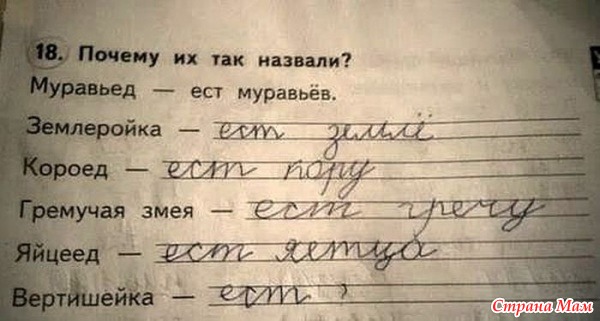 18. Почему их так назвали?
Муравьед — ест муравьёв.
Землеройка — ест землё
Короед — ест пору
Гремучая змея — ест гречу
Яйцеед — ест яетца
Вертишейка — ест ?
Страна Мам